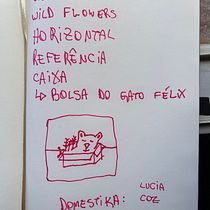 WILD FLOWERS
HORIZONTAL
REFERÊNCIA
CAIXA
↳ BOLSA DO GATO FÉLIX
DOMESTIKA: LUCIA
COZ